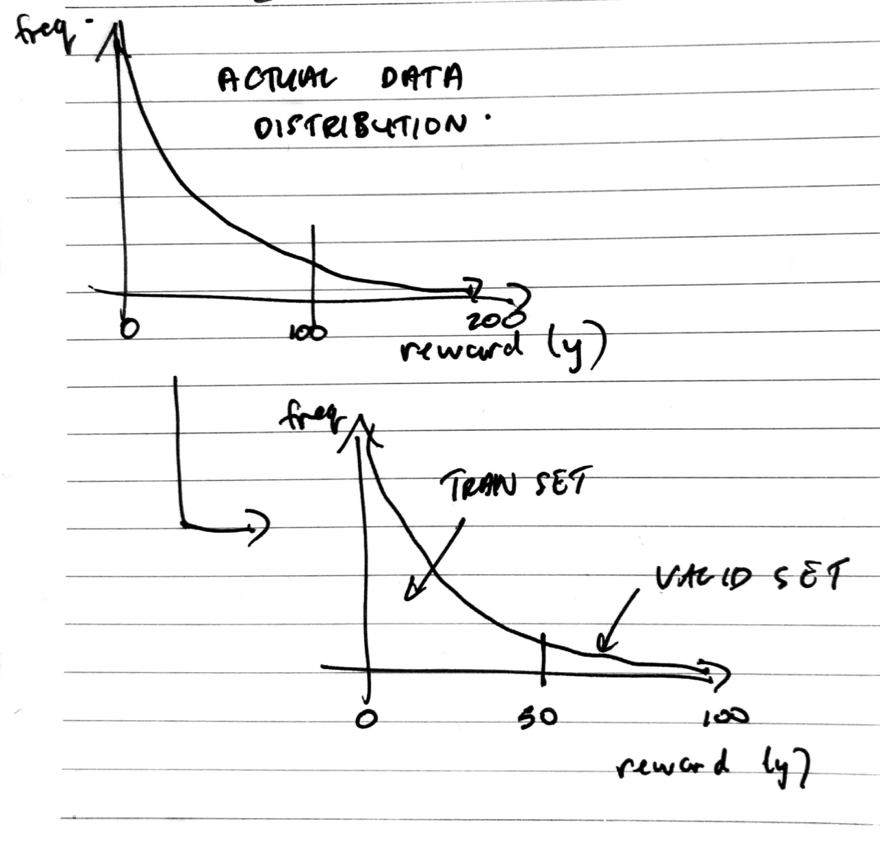 freq.
ACTUAL DATA
DISTRIBUTION.
0 100 200
reward (y)
freq
TRAIN SET
VALID SET
0 50 100
reward (y)